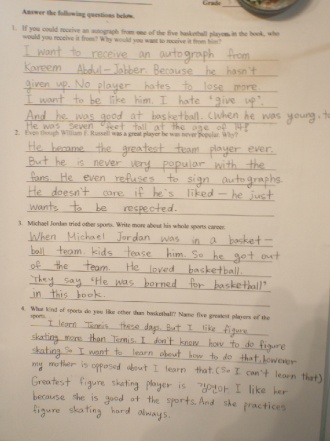 Grade
Answer the following questions below.
1. If you could receive an autograph from one of the five basketball players in the book, who
would you receive it from? Why would you want to receive it from him?
I want to receive an autograph from
Kareem Abdul-Jabber. Because he hasn't
given up. No player hates to lose more.
I want to be like him. I hate "give up".
And he was good at basketball. (When he was young, to
He was seven "feet tall at the age of 14?
2. Even though William F. Russell was a great player he was never Popular. Why?
He became the greatest team player ever.
But he is never very popular with the
fans. He even refuses to sign autographs.
He doesn't care if he's liked – he just
wants to be respected.
3. Michael Jordan tried other sports. Write more about his whole sports career.
When Michael Jordan was in a basket-
ball team. kids tease him. So he got out
of the team. He loved basketball.
They say "He was borned for basketball"
in this book.
4. What kind of sports do you like other than basketball? Name five greatest players of the
sports.
I learn Tennis these days. But I like figure
skating more than Tennis. I don't know how to do figure
skating. So I want to learn about how to do that. however
my mother is opposed about I learn that. (So I can't learn that)
Greatest figure skating player is 김연아. I like her
because she is good at the sports. And she practices
figure skating hard always.